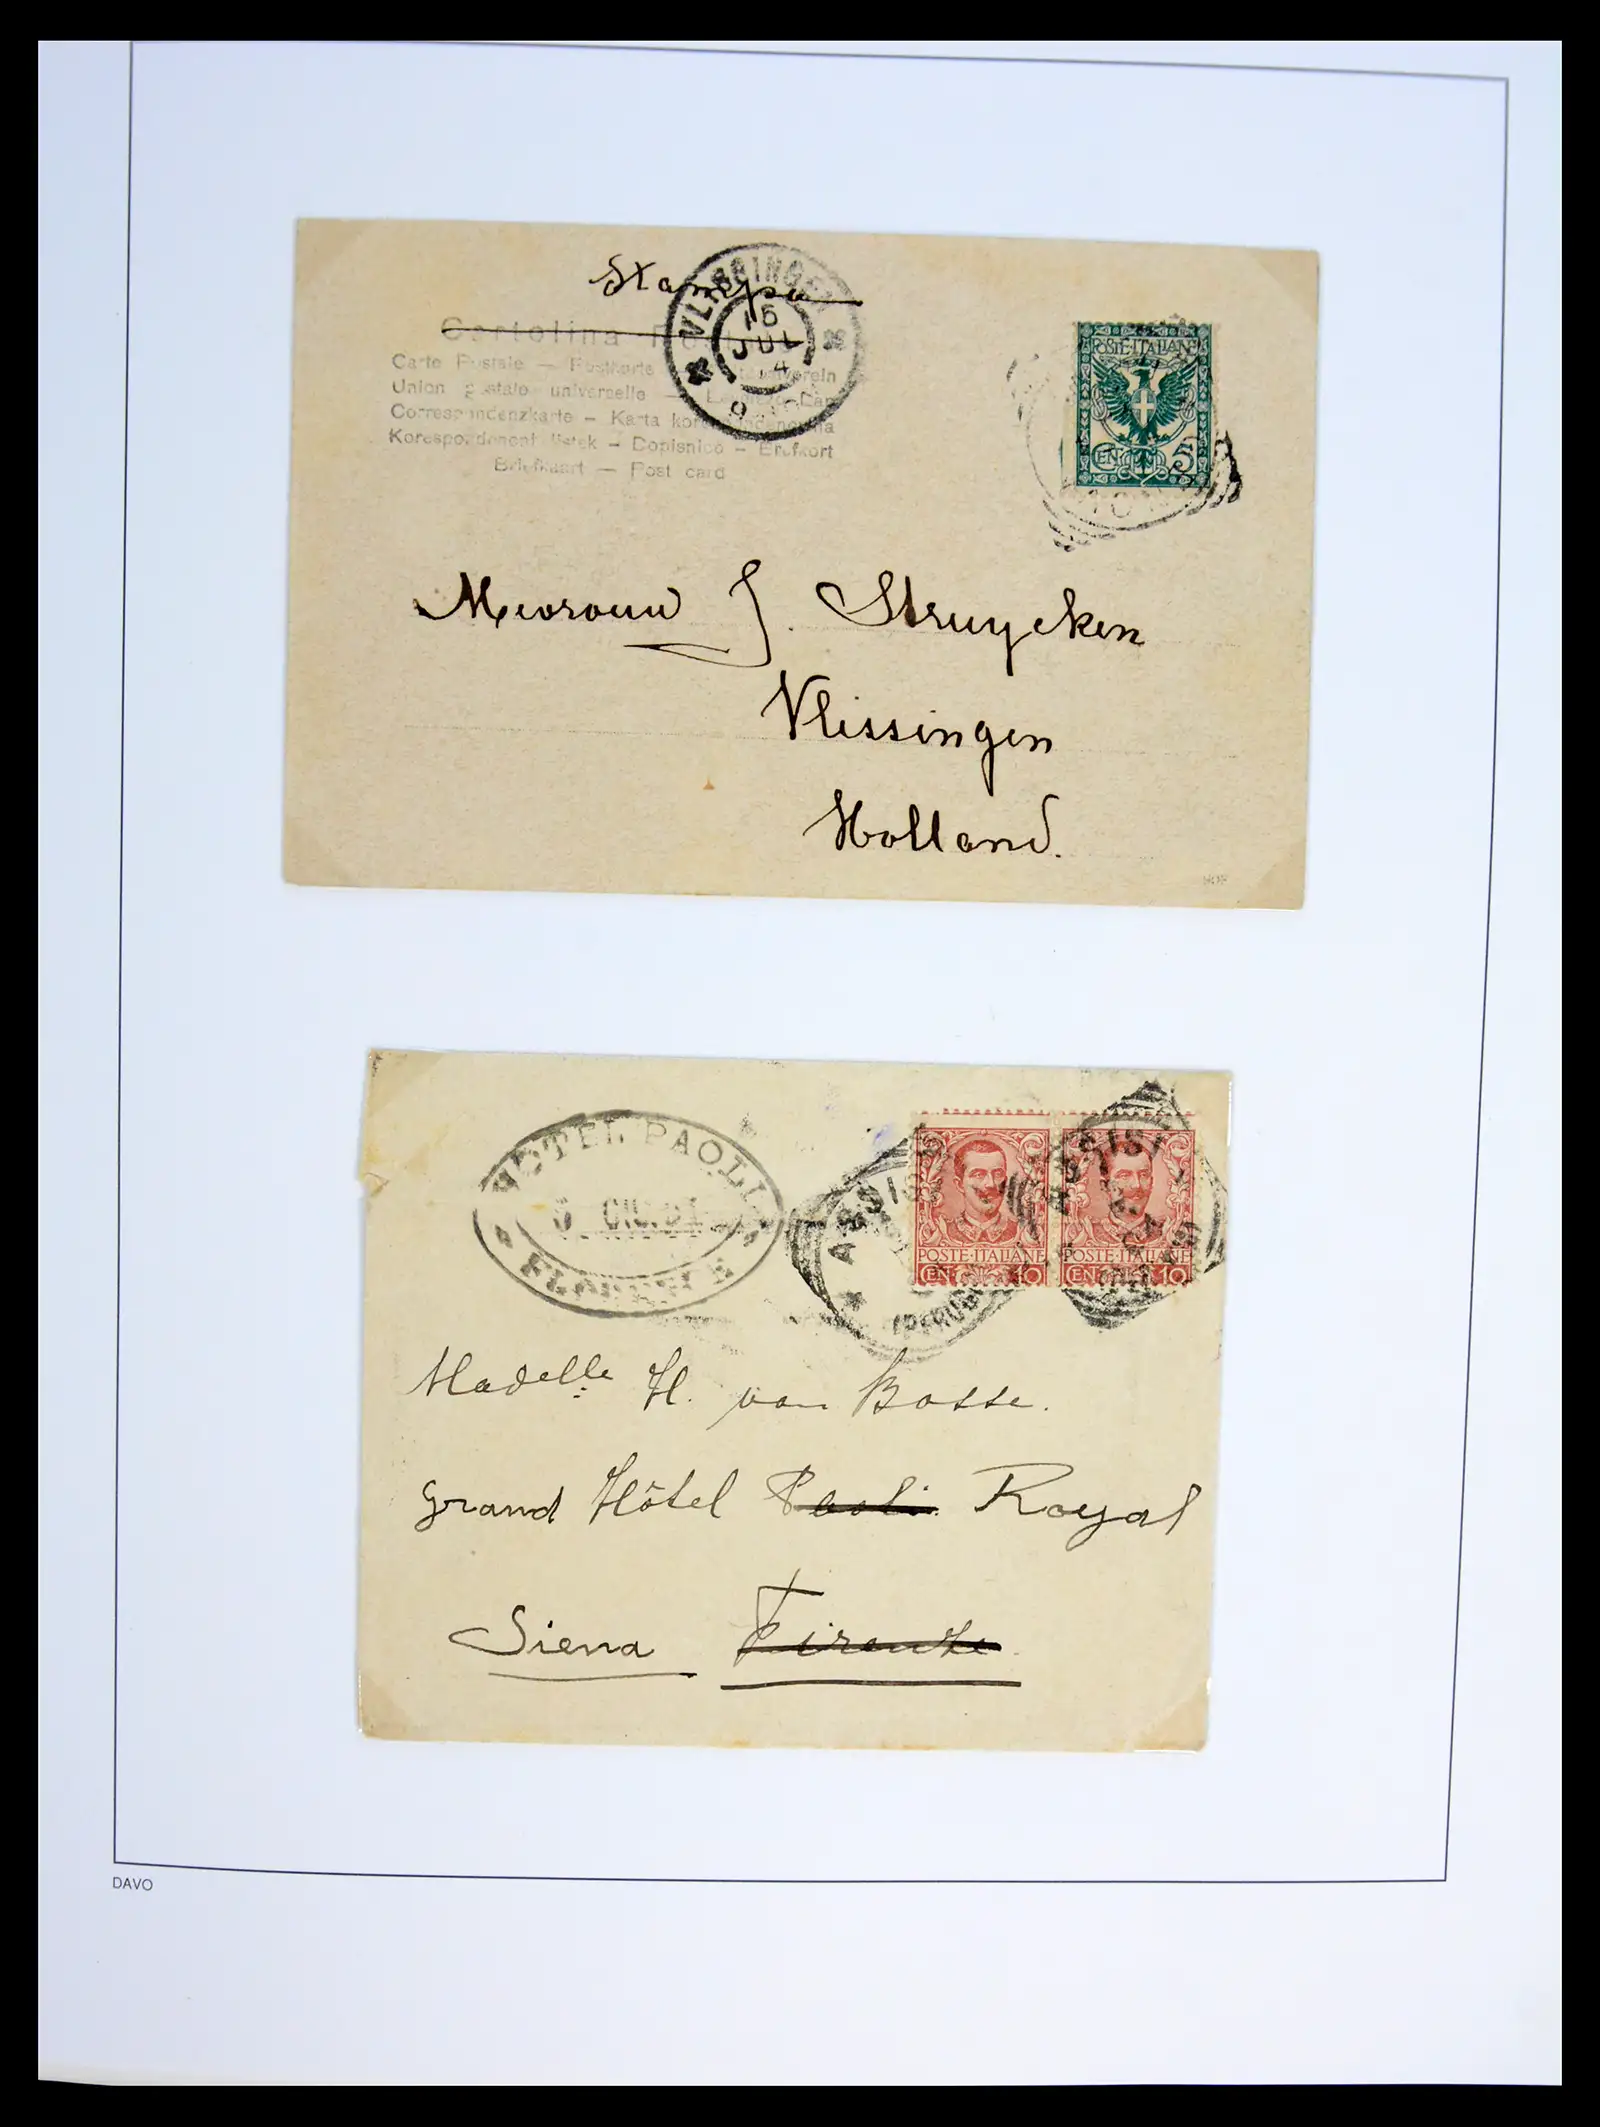 Stampa
VLISSINGEN
16
JUL
Cartolina
Carte Postale — Postkarte
Union postale universelle —
Correspondenzkarte — Karta korespondencyjna
Korespondenční lístek — Dopisnice — Brefkort
Briefkaart — Post card
POSTE·ITALIANE
CENT 5
Mevrouw J. Struycken
Vlissingen
Holland.
HOTEL PAOLI
5 GIU.
FIRENZE
ASSISI
(PERUGIA)
ASSISI
POSTE·ITALIANE
CENT 10
POSTE·ITALIANE
CENT 10
Madelle H. van Bosse.
Grand Hôtel Paoli Royal
Siena Firenze
DAVO